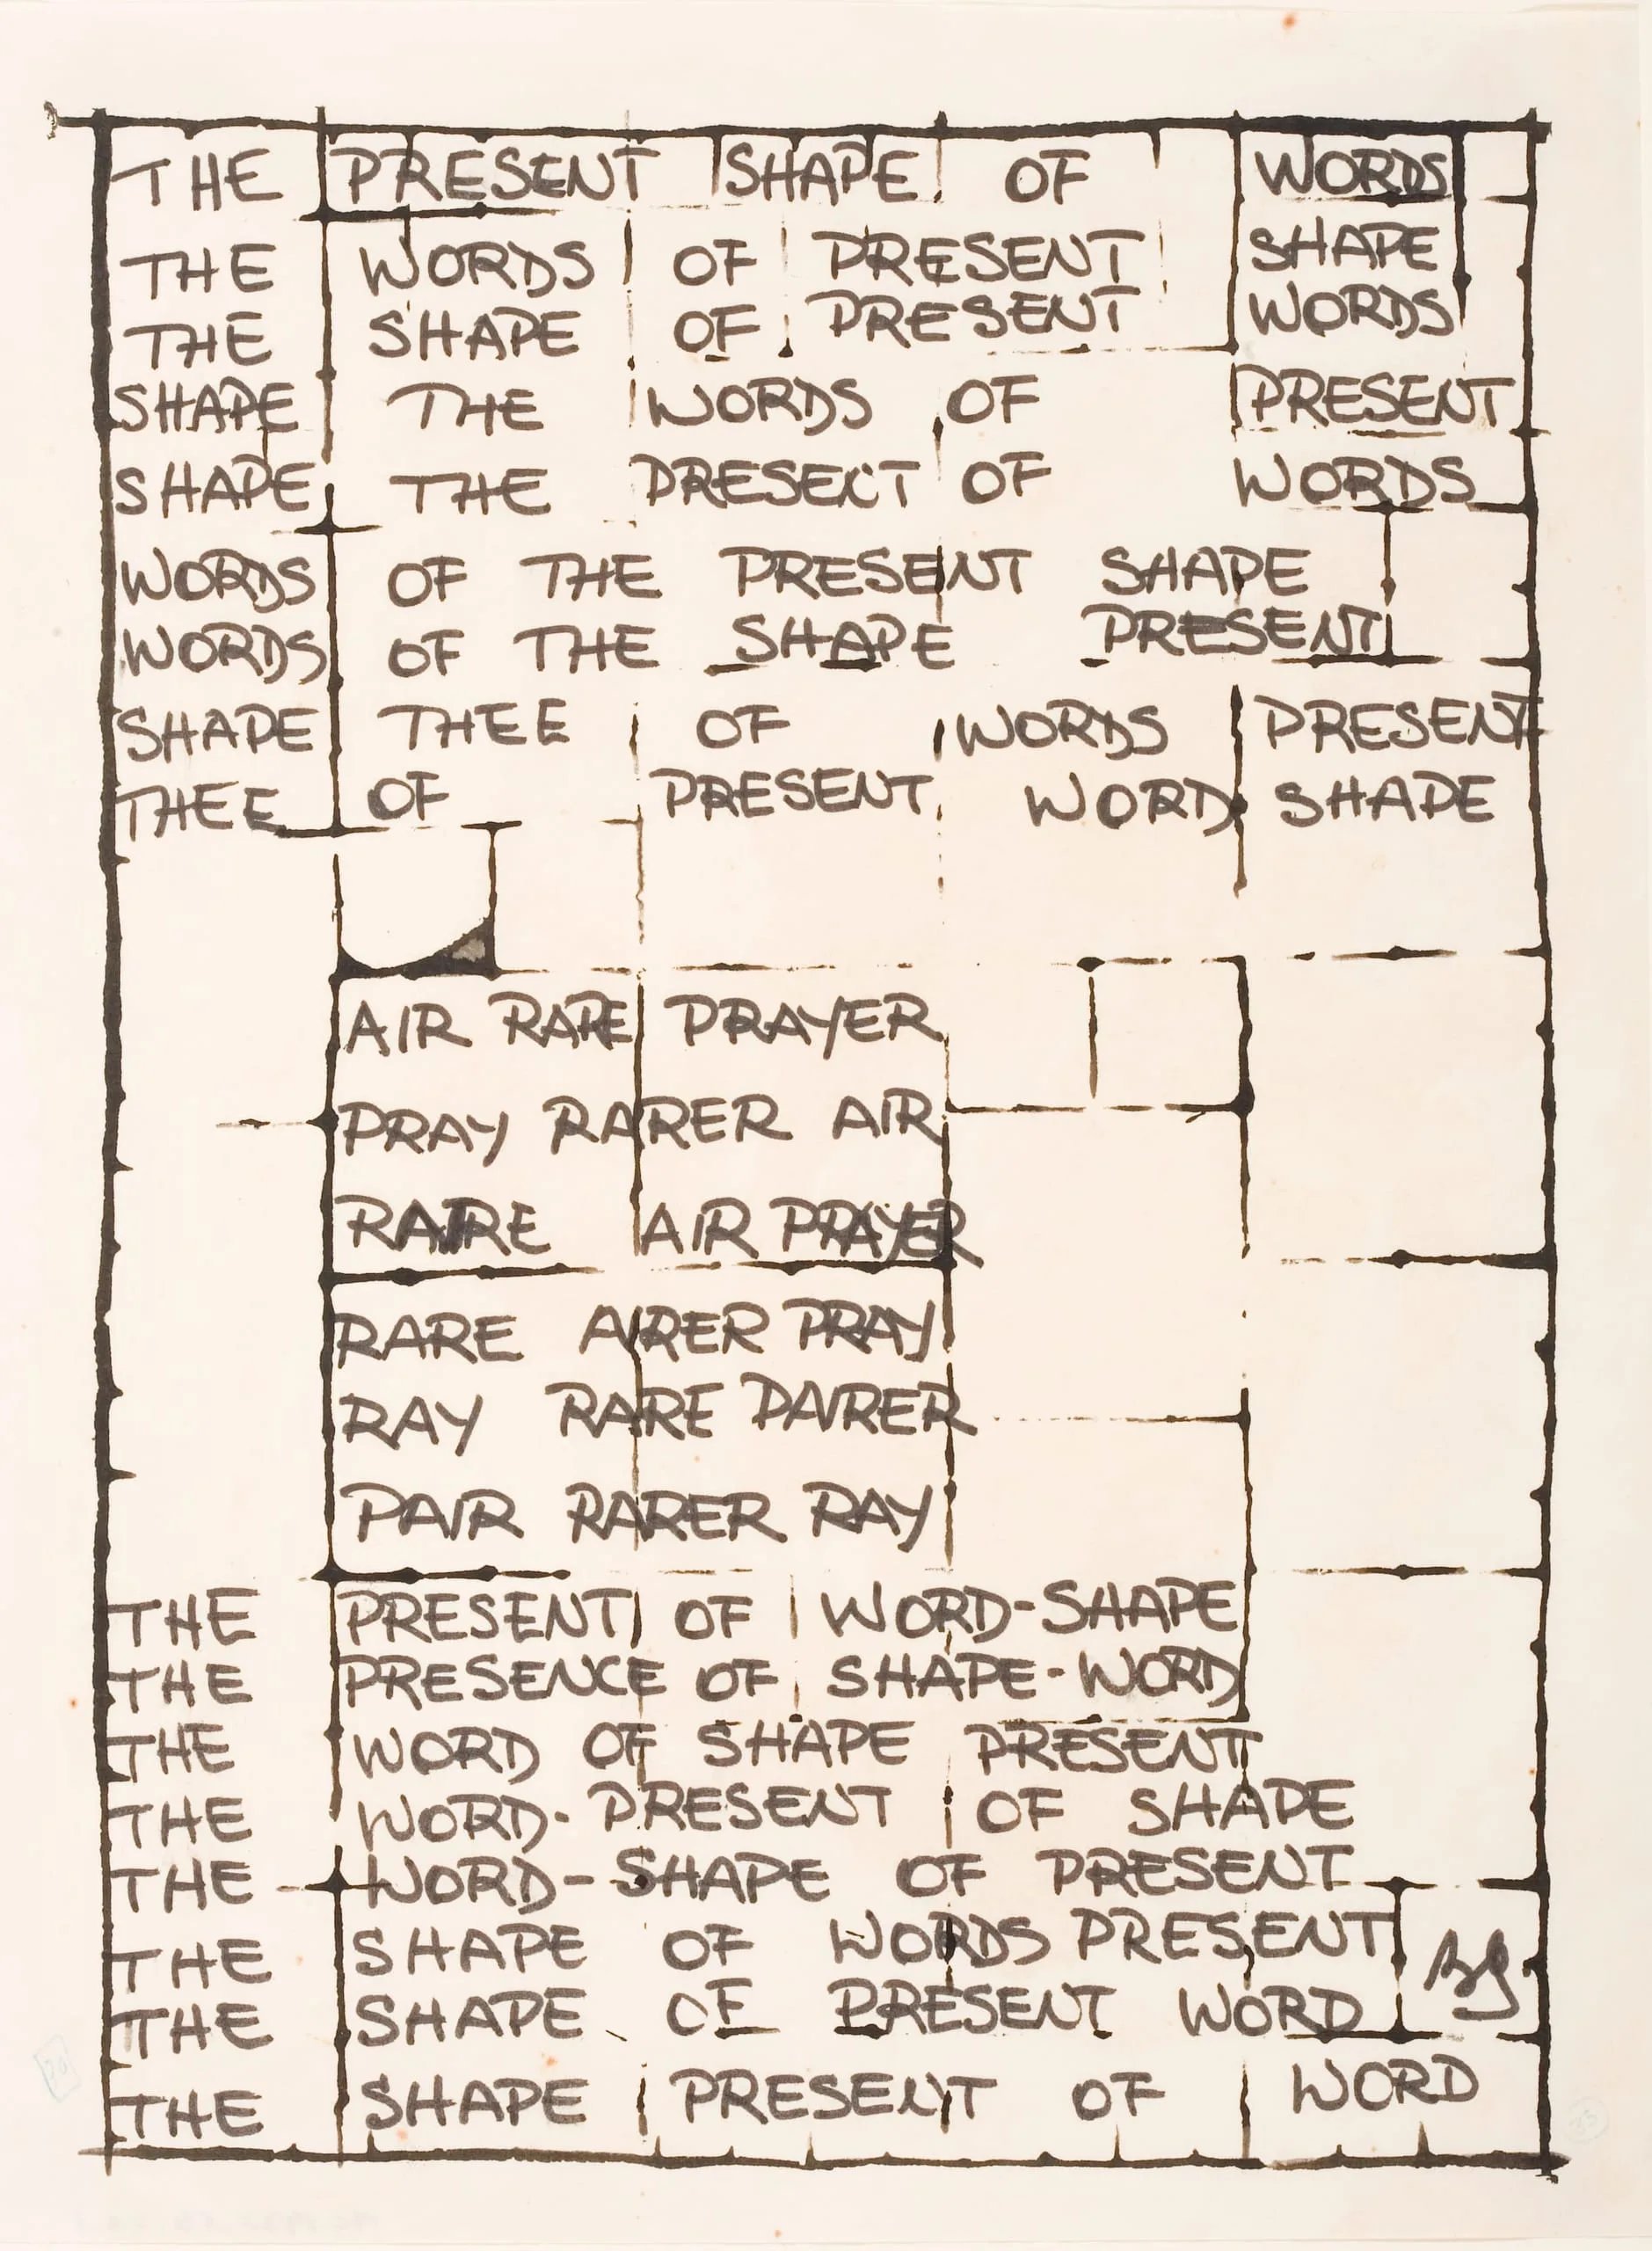 THE PRESENT SHAPE OF WORDS
THE WORDS OF PRESENT SHAPE
THE SHAPE OF PRESENT WORDS
SHAPE THE WORDS OF PRESENT
SHAPE THE PRESENT OF WORDS
WORDS OF THE PRESENT SHAPE
WORDS OF THE SHAPE PRESENT
SHAPE THEE OF WORDS PRESENT
THEE OF PRESENT WORD SHAPE
AIR RAPE PRAYER
PRAY RARER AIR
RARE AIR PRAYER
RARE AIRER PRAY
RAY RARE PAIRER
PAIR RARER RAY
THE PRESENT OF WORD-SHAPE
THE PRESENCE OF SHAPE-WORD
THE WORD OF SHAPE PRESENT
THE WORD-PRESENT OF SHAPE
THE WORD-SHAPE OF PRESENT
THE SHAPE OF WORDS PRESENT
THE SHAPE OF PRESENT WORD
THE SHAPE PRESENT OF WORD